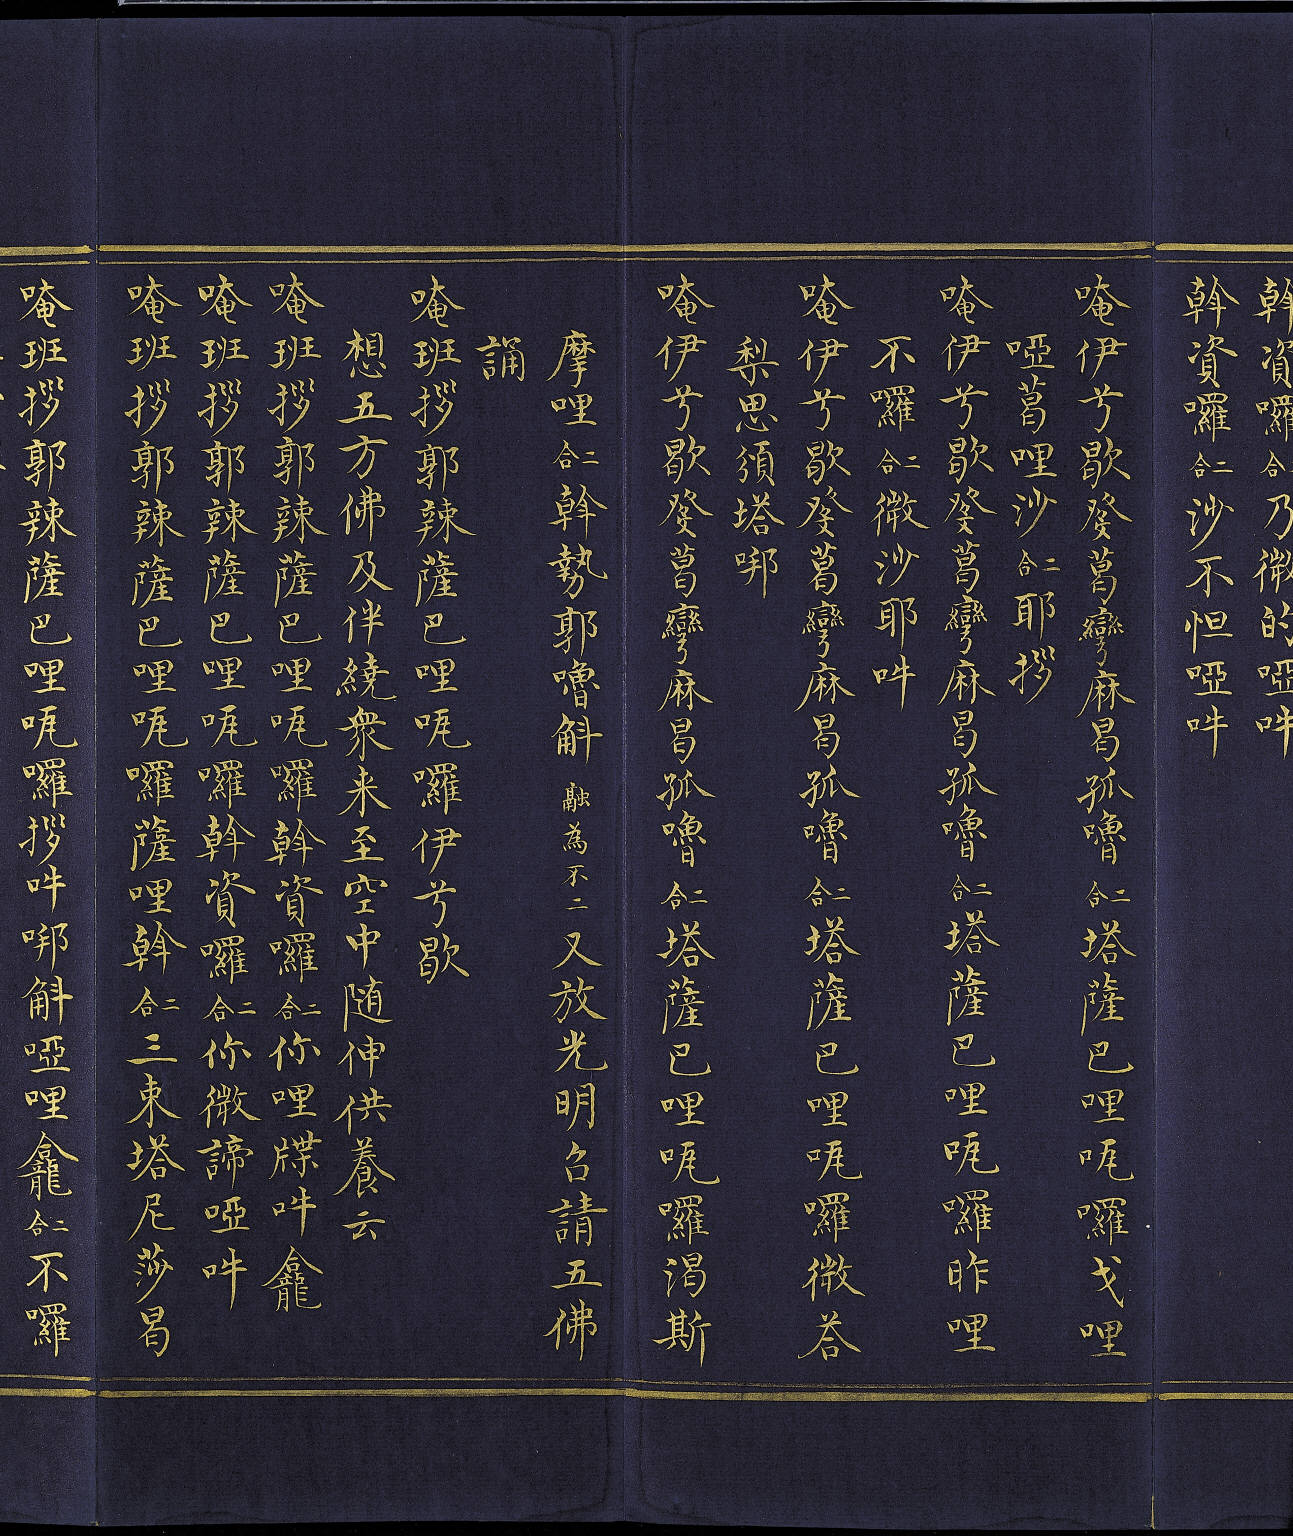 斡資囉二合乃微的啞吽
斡資囉二合沙不怛啞吽
唵伊兮歇癹葛彎麻曷孤嚕二合塔薩巴哩咓囉戈哩
啞葛哩沙二合耶拶
唵伊兮歇癹葛彎麻曷孤嚕二合塔薩巴哩咓囉昨哩
不囉二合微沙耶吽
唵伊兮歇癹葛彎麻曷孤嚕二合塔薩巴哩咓囉微荅
梨思須塔㖿
唵伊兮歇癹葛彎麻曷孤嚕二合塔薩巴哩咓囉渴斯
摩哩二合斡勢郭嚕斛融為不二又放光明召請五佛
誦
唵班拶郭辣薩巴哩咓囉伊兮歇
想五方佛及伴繞衆来至空中随伸供養云
唵班拶郭辣薩巴哩咓囉斡資囉二合你哩牒吽龕
唵班拶郭辣薩巴哩咓囉斡資囉二合你微諦啞吽
唵班拶郭辣薩巴哩咓囉薩哩斡二合三東塔尼莎曷
唵班拶郭辣薩巴哩咓囉拶吽㖿斛啞哩龕二合不囉